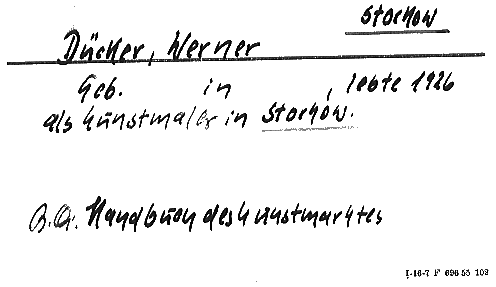 Stochow
Dücker, Werner
Geb. in , lebte 1926
als Kunstmaler in Stochow.
B.A. Handbuch des Kunstmarktes
I-16-7 F 696 55 103